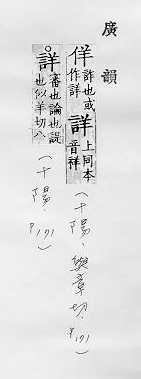 廣韻
佯詐也或作詳詳上同本音祥
(十陽、與章切、P171)
詳審也論也諟也似羊切八
(十陽、P171)